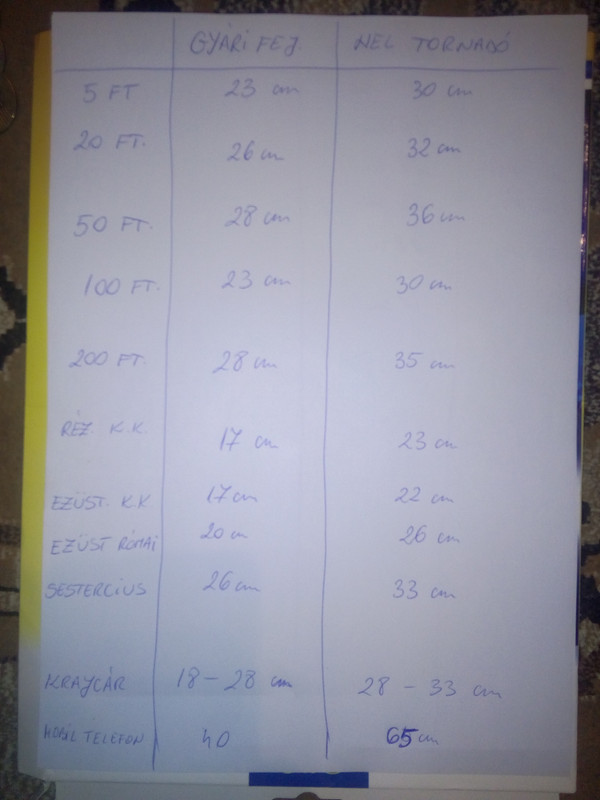 GYÁRI FEJ. NEL TORNADÓ
5 FT 23 cm 30 cm
20 FT. 26 cm 32 cm
50 FT. 28 cm 36 cm
100 FT. 23 cm 30 cm
200 FT. 28 cm 35 cm
RÉZ. K.K. 17 cm 23 cm
EZÜST. K.K 17 cm 22 cm
EZÜST RÓMAI 20 cm 26 cm
SESTERCIUS 26 cm 33 cm
KRAJCÁR 18 - 28 cm 28 - 33 cm
MOBIL TELEFON 40 65 cm